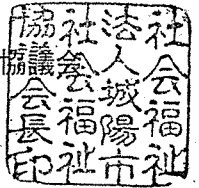 社会福祉
法人城陽市
社会福祉
協議会長印
協